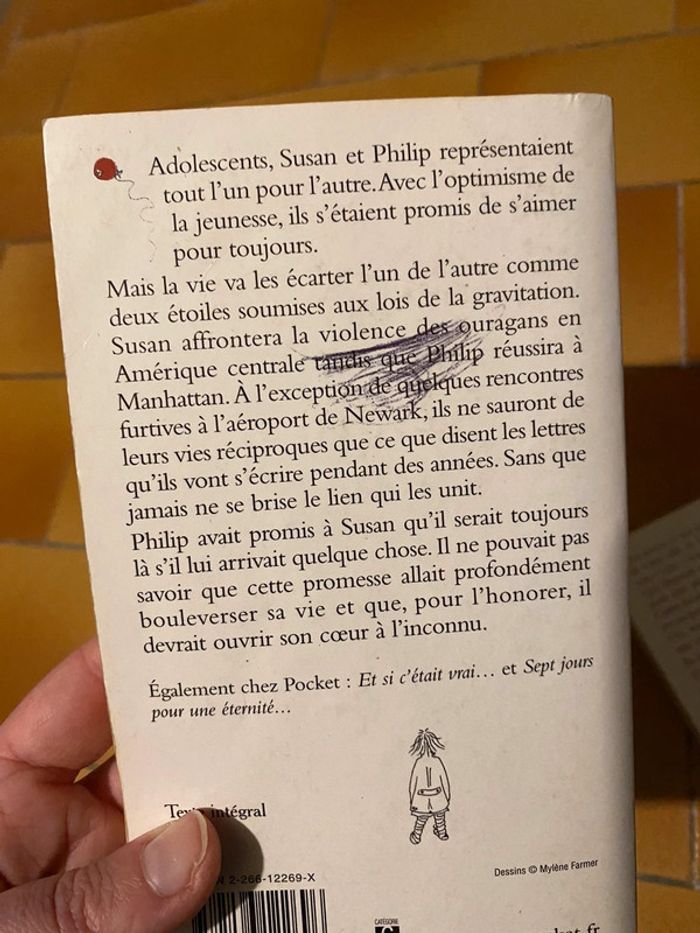 Adolescents, Susan et Philip représentaient
tout l'un pour l'autre. Avec l'optimisme de
la jeunesse, ils s'étaient promis de s'aimer
pour toujours.
Mais la vie va les écarter l'un de l'autre comme
deux étoiles soumises aux lois de la gravitation.
Susan affrontera la violence des ouragans en
Amérique centrale tandis que Philip réussira à
Manhattan. À l'exception de quelques rencontres
furtives à l'aéroport de Newark, ils ne sauront de
leurs vies réciproques que ce que disent les lettres
qu'ils vont s'écrire pendant des années. Sans que
jamais ne se brise le lien qui les unit.
Philip avait promis à Susan qu'il serait toujours
là s'il lui arrivait quelque chose. Il ne pouvait pas
savoir que cette promesse allait profondément
bouleverser sa vie et que, pour l'honorer, il
devrait ouvrir son cœur à l'inconnu.
Également chez Pocket : Et si c'était vrai… et Sept jours
pour une éternité…
intégral
Dessins © Mylène Farmer
2-266-12269-X
CATÉGORIE